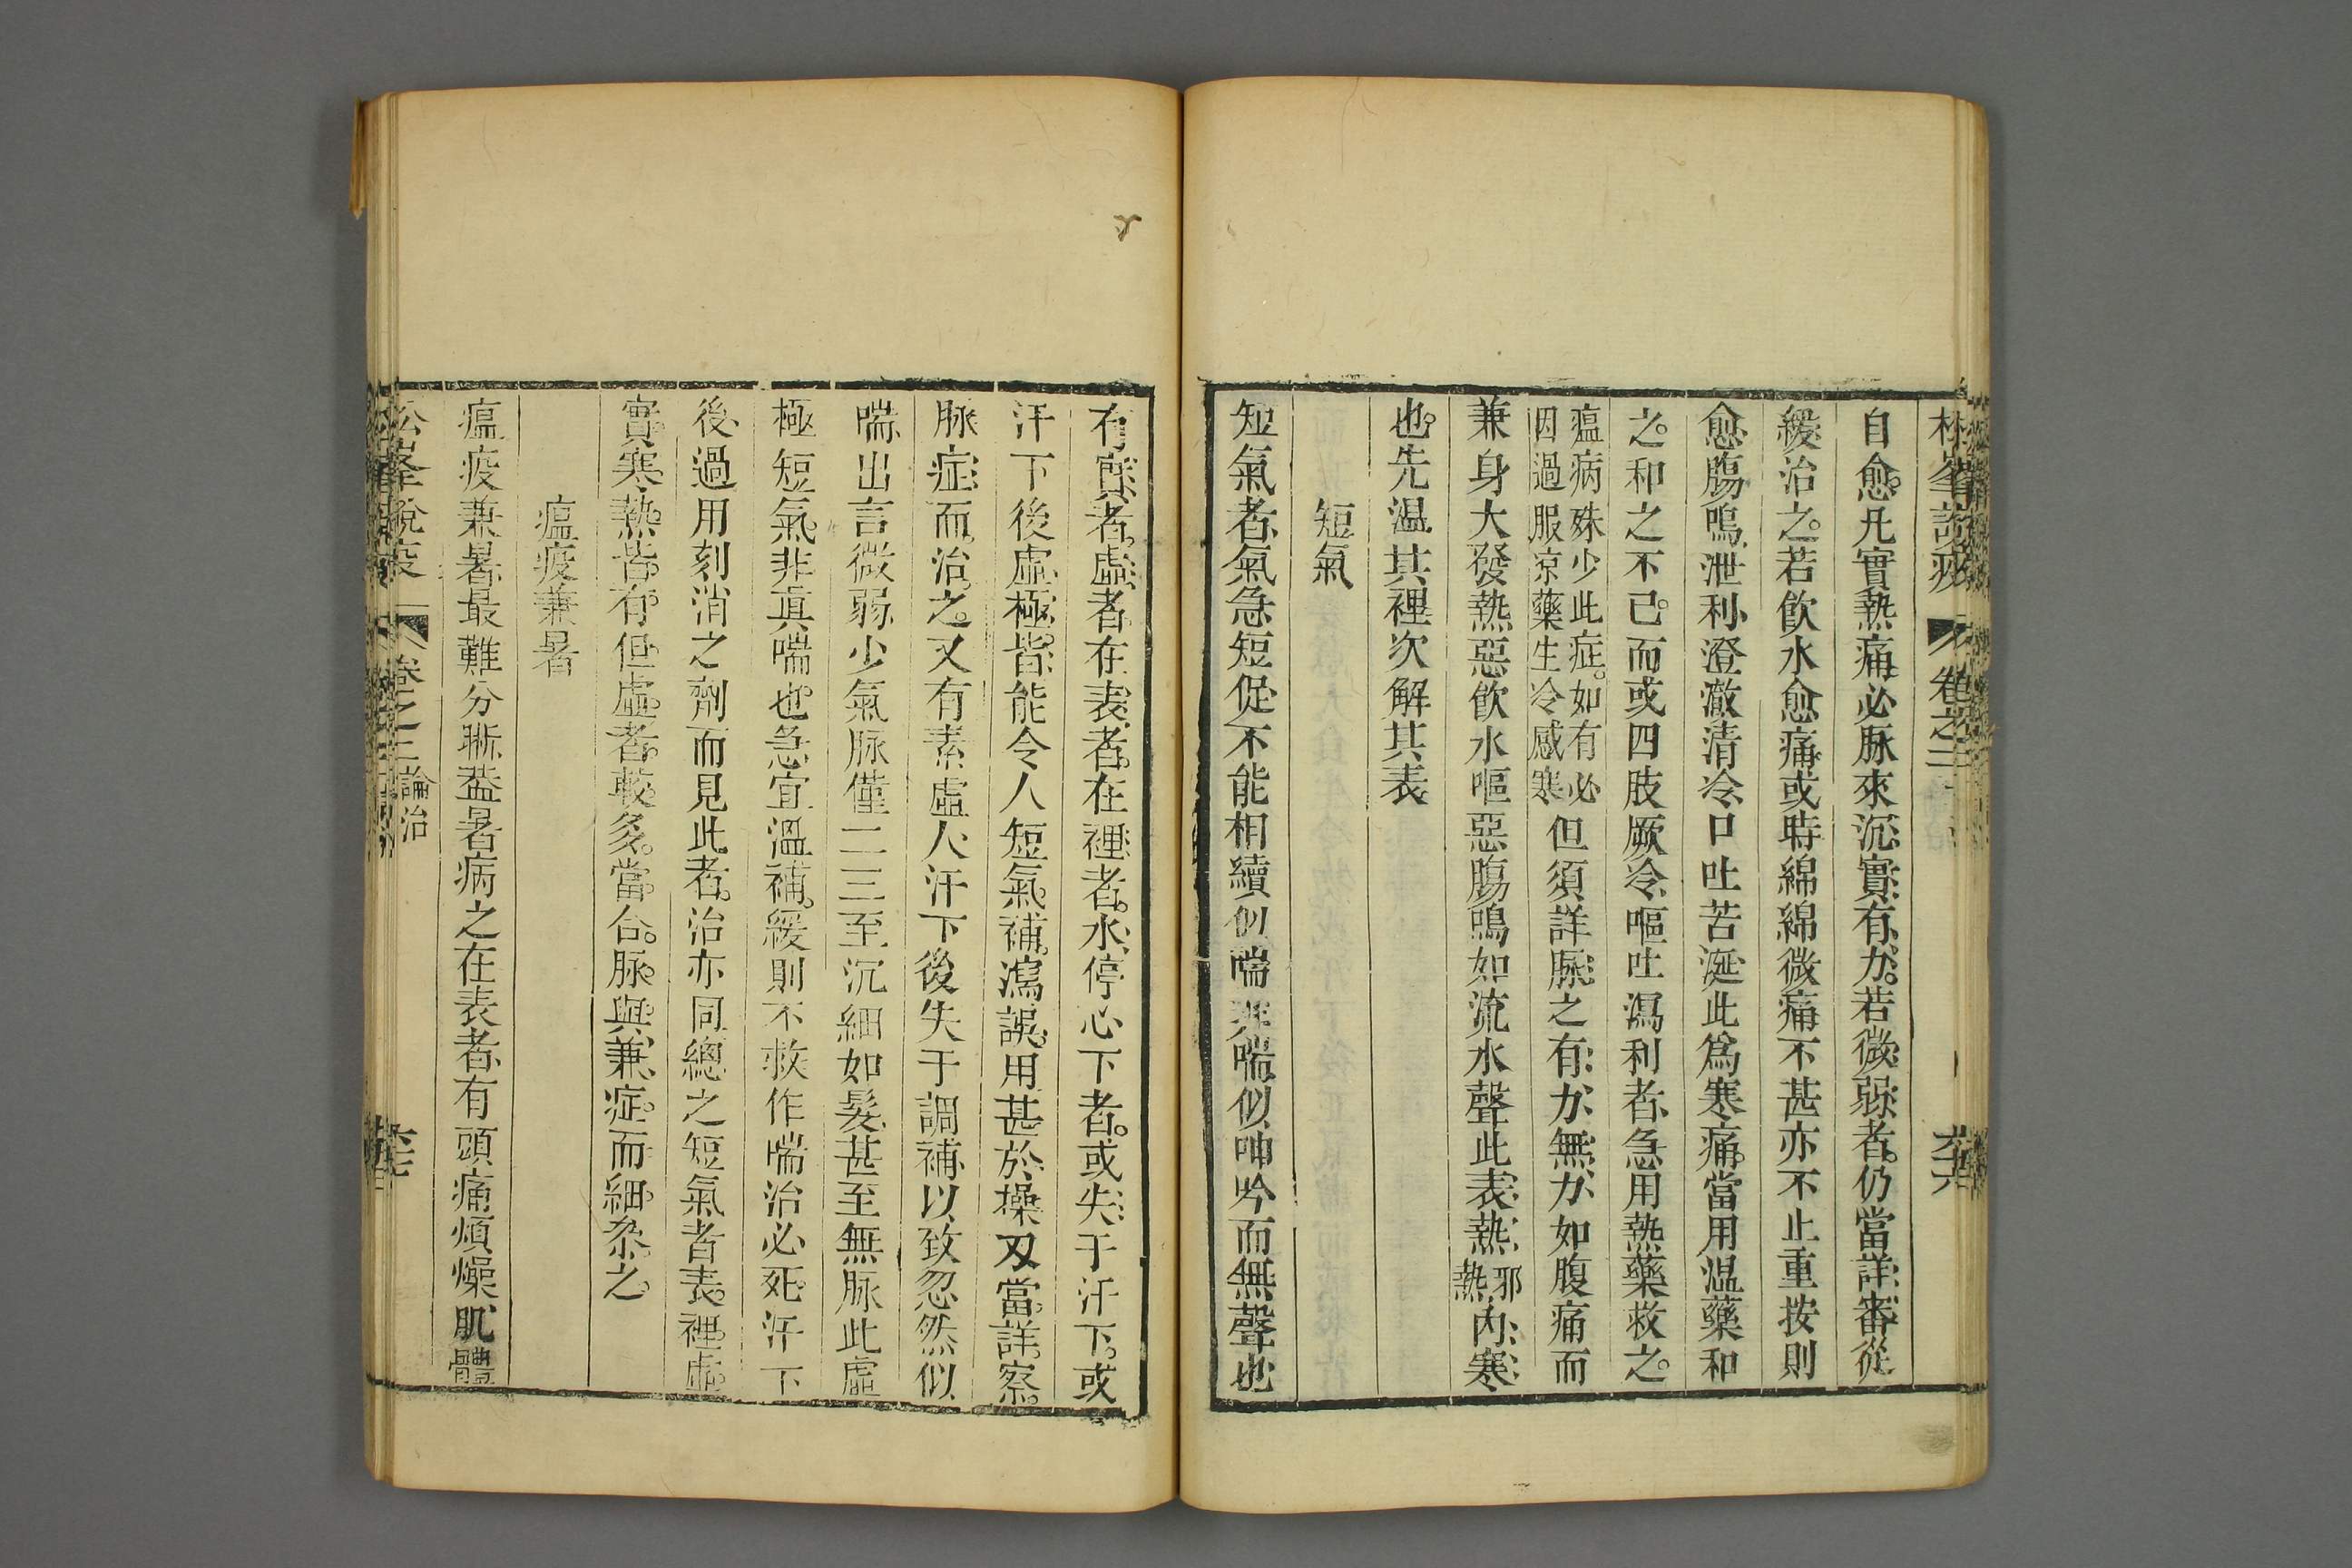 松峯說疫 卷之三
六十六
自愈。凡實熱痛必脉來沉實有力。若微弱者。仍當詳審從
緩治之。若飲水愈痛或時綿綿微痛不甚亦不止重按則
愈腸鳴泄利澄澈清冷口吐苦涎此爲寒痛。當用温藥和
之。和之不已。而或四肢厥冷嘔吐瀉利者急用熱藥救之。
瘟病殊少此症。如有必
因過服涼藥生冷感寒
但須詳脈之有力無力如腹痛而
兼身大發熱惡飲水嘔惡腸鳴如流水聲此表熱
邪
熱
内寒
也。先温其裡次解其表
短氣
短氣者氣急短促不能相續似喘非喘似呻吟而無聲也
有餘者虛者在表者在裡者。水停心下者。或失于汗下。或
汗下後虛極。皆能令人短氣補瀉誤用甚於操刄當詳察。
脉症而治之。又有素虛人汗下後失于調補以致忽然似
喘出言微弱少氣脉僅二三至沉細如髮甚至無脉此虛
極短氣非眞喘也急宜溫補。緩則不救作喘治必死汗下
後過用刻消之劑而見此者。治亦同總之短氣者表裡虛
實寒熱皆有但虛者較多。當合脉與兼症而細叅之
瘟疫兼暑
瘟疫兼暑最難分晰葢暑病之在表者有頭痛煩燥肌體
松峯說疫 卷之三 論治
六十七